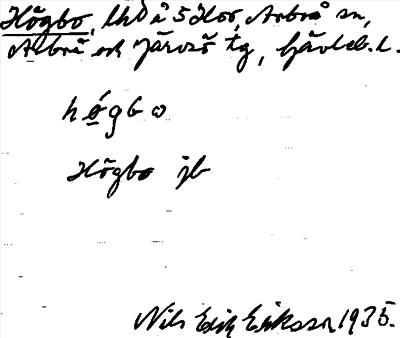 Högbo, lhd å 5 Hov, Arbrå sn,
Arbrå och Järvsö tg, Gävleb. l.
hó̤gbo
Högbo jb
Nils Erik Eriksson 1935.